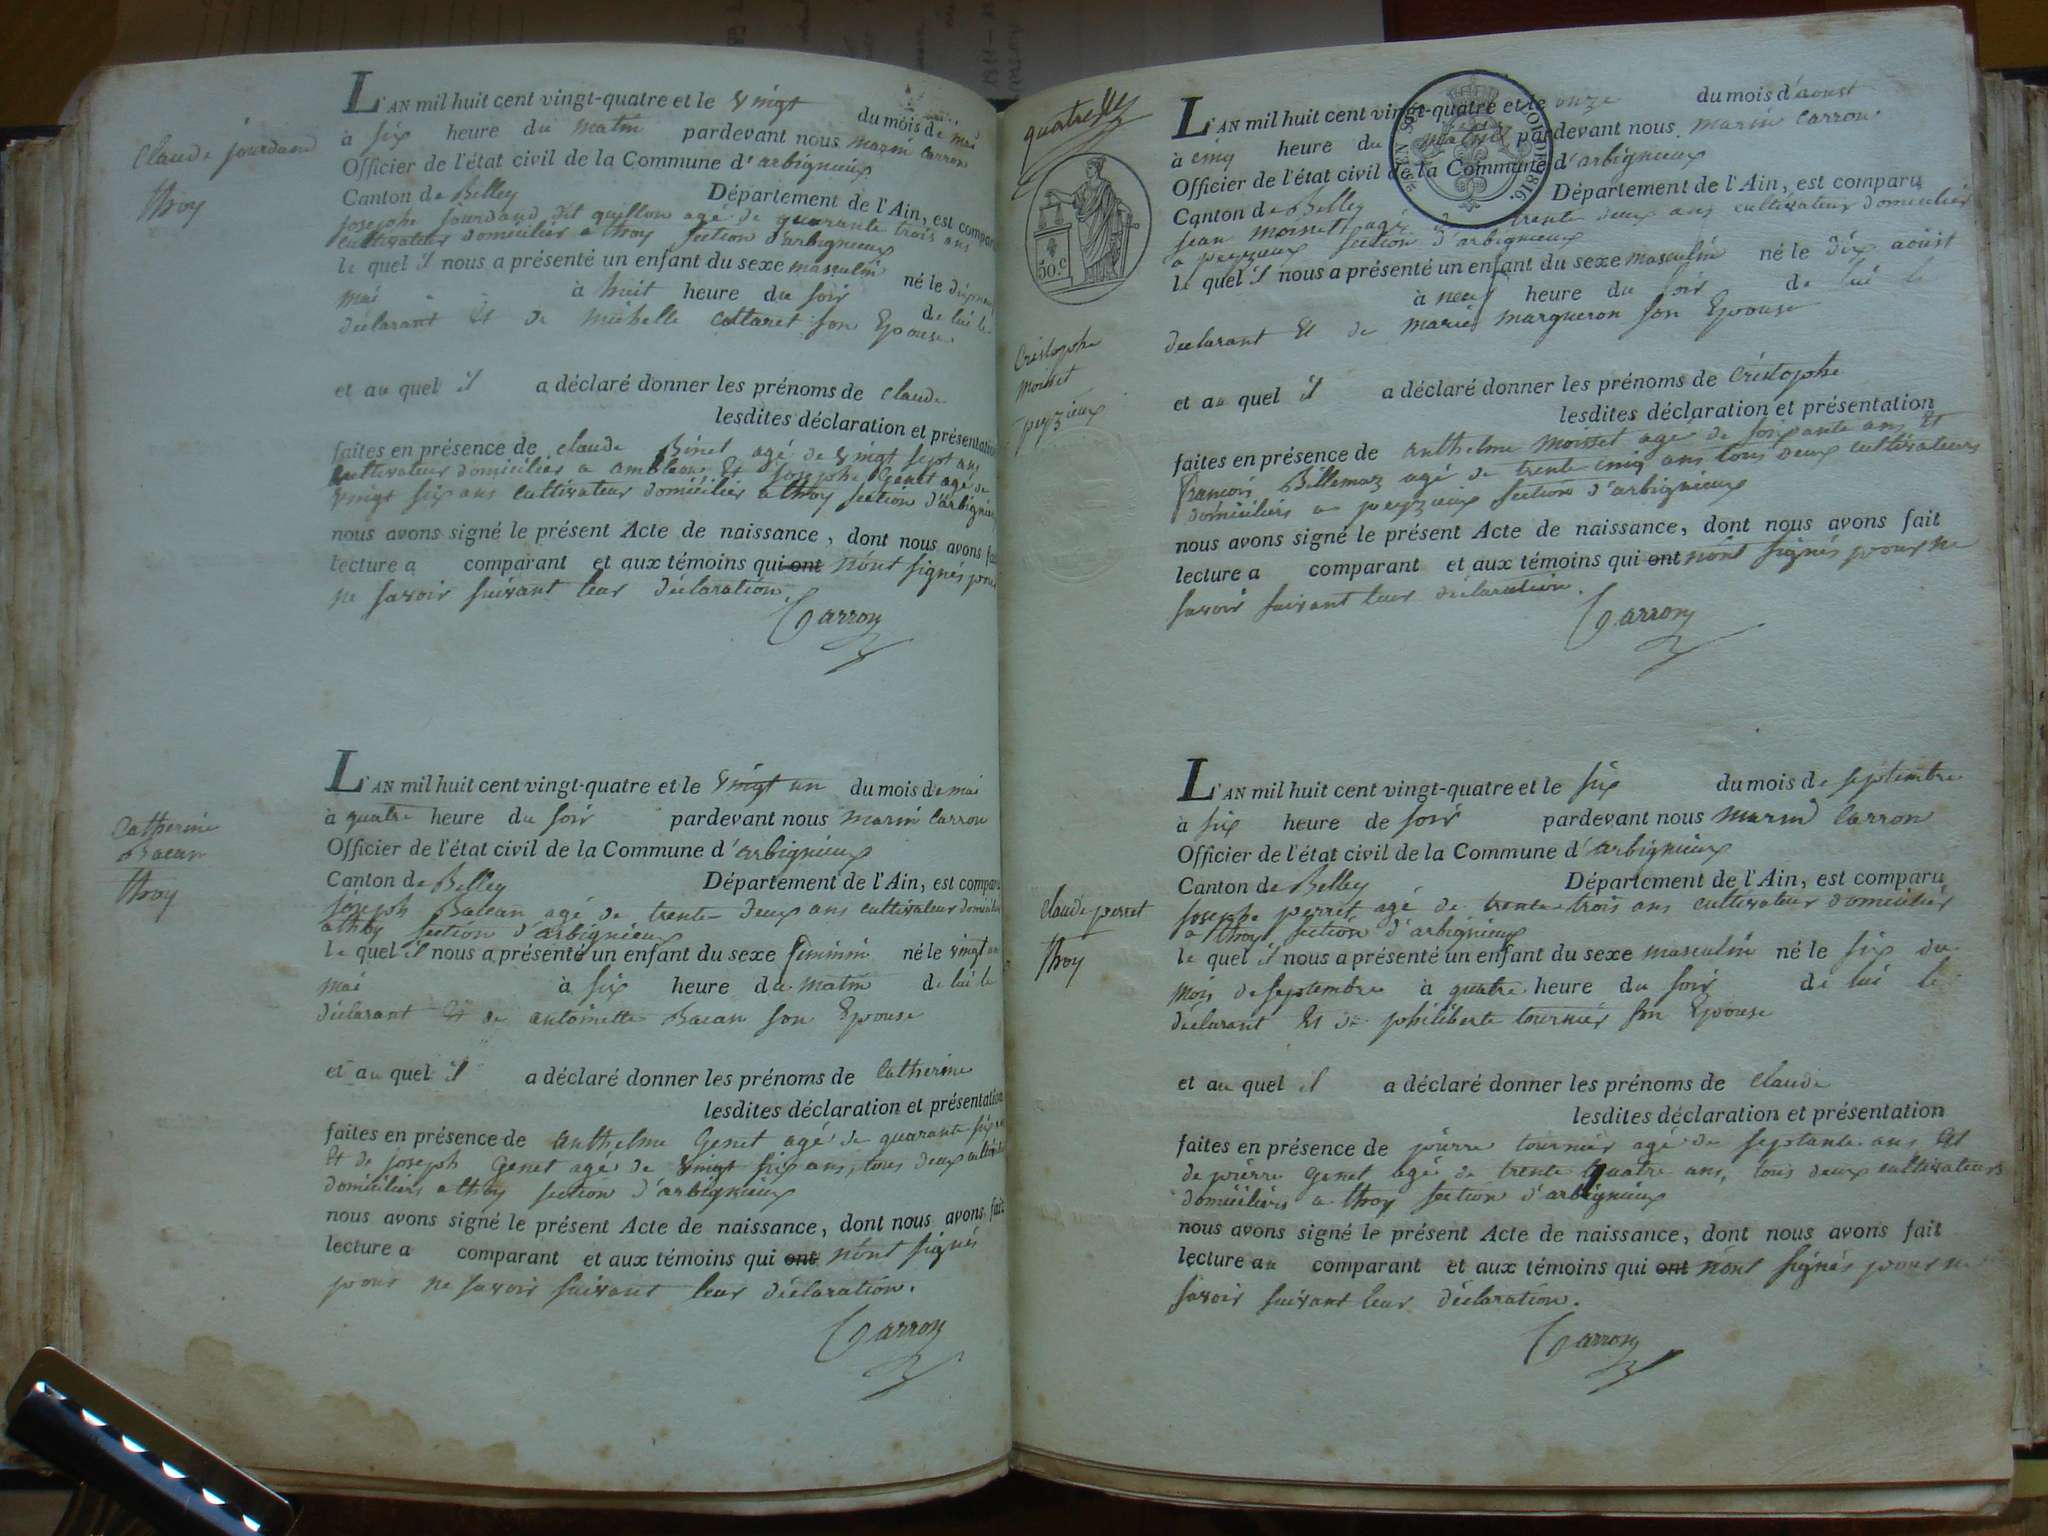 Claude jourdand
throy
L'AN mil huit cent vingt-quatre et le vingt du mois de mai
à six heure du matin pardevant nous marin carron
Officier de l'état civil de la Commune d'arbignieux
Canton de Belley Département de l'Ain, est compar
josephe jourdand dit quillon agé de quarante trois ans
cultivateur domicilier a throy section d'arbignieux
le quel il nous a présenté un enfant du sexe masculin né le
mai à huit heure du soir de lui le
déclarant Et de michelle collaret son Epouse
et au quel il a déclaré donner les prénoms de claude
lesdites déclaration et présentation
faites en présence de claude Binet agé de vingt sept ans
cultivateur domicilier a Et josephe Genet agé de
vingt six ans cultivateur domicilier a throy section d'arbignieux
nous avons signé le présent Acte de naissance, dont nous avons fai
lecture a comparant et aux témoins qui ont n'ont signés pour
ne savoir suivant leur déclaration.
Carron
Catherine
Bacan
throy
L'AN mil huit cent vingt-quatre et le vingt un du mois de mai
à quatre heure du soir pardevant nous marin Carron
Officier de l'état civil de la Commune d'arbignieux
Canton de Belley Département de l'Ain, est comparu
joseph Bacan agé de trente-deux ans cultivateur domicilier
a throy section d'arbignieux
le quel il nous a présenté un enfant du sexe feminin né le vingt un
mai à six heure du matin de lui le
déclarant Et de antoinette Bacan son Epouse
et au quel il a déclaré donner les prénoms de Catherine
lesdites déclaration et présentation
faites en présence de anthelme Genet agé de quarante six
Et de joseph Genet agé de vingt six ans, tous deux
domiciliers a throy section d'arbignieux
nous avons signé le présent Acte de naissance, dont nous avons fait
lecture a comparant et aux témoins qui ont n'ont signés
pour ne savoir suivant leur déclaration.
Carron
quatre
50.C
Cristophe
moisset
peyzieux
L'AN mil huit cent vingt-quatre et le onze du mois d'aoust
à cinq heure du matin pardevant nous marin Carron
Officier de l'état civil de la Commune d'arbignieux
Canton de Belley Département de l'Ain, est comparu
jean moisset agé de trente deux ans cultivateur domicilier
a peyzieux section d'arbignieux
le quel il nous a présenté un enfant du sexe masculin né le dix aoüst
à neuf heure du soir de lui le
declarant Et de marie margueron son Epouse
et au quel il a déclaré donner les prénoms de Cristophe
lesdites déclaration et présentation
faites en présence de anthelme moisset agé de soixante ans Et
francois Billemaz agé de trente cinq ans tous deux cultivateurs
domiciliers a peyzieux section d'arbignieux
nous avons signé le présent Acte de naissance, dont nous avons fait
lecture a comparant et aux témoins qui ont n'ont signés pour ne
savoir suivant leur déclaration.
Carron
claude perret
throy
L'AN mil huit cent vingt-quatre et le six du mois de septembre
à six heure de soir pardevant nous marin Carron
Officier de l'état civil de la Commune d'arbignieux
Canton de Belley Département de l'Ain, est comparu
josephe perret agé de trente-trois ans cultivateur domicilier
a throy section d'arbignieux
le quel il nous a présenté un enfant du sexe masculin né le six du
mois de septembre à quatre heure du soir de lui le
déclarant Et de philiberte tournier son Epouse
et au quel il a déclaré donner les prénoms de claude
lesdites déclaration et présentation
faites en présence de pierre tournier agé de septante ans Et
de pierre Genet agé de trente quatre ans, tous deux cultivateurs
domiciliers a throy section d'arbignieux
nous avons signé le présent Acte de naissance, dont nous avons fait
lecture au comparant et aux témoins qui ont n'ont signés pour ne
savoir suivant leur déclaration.
Carron